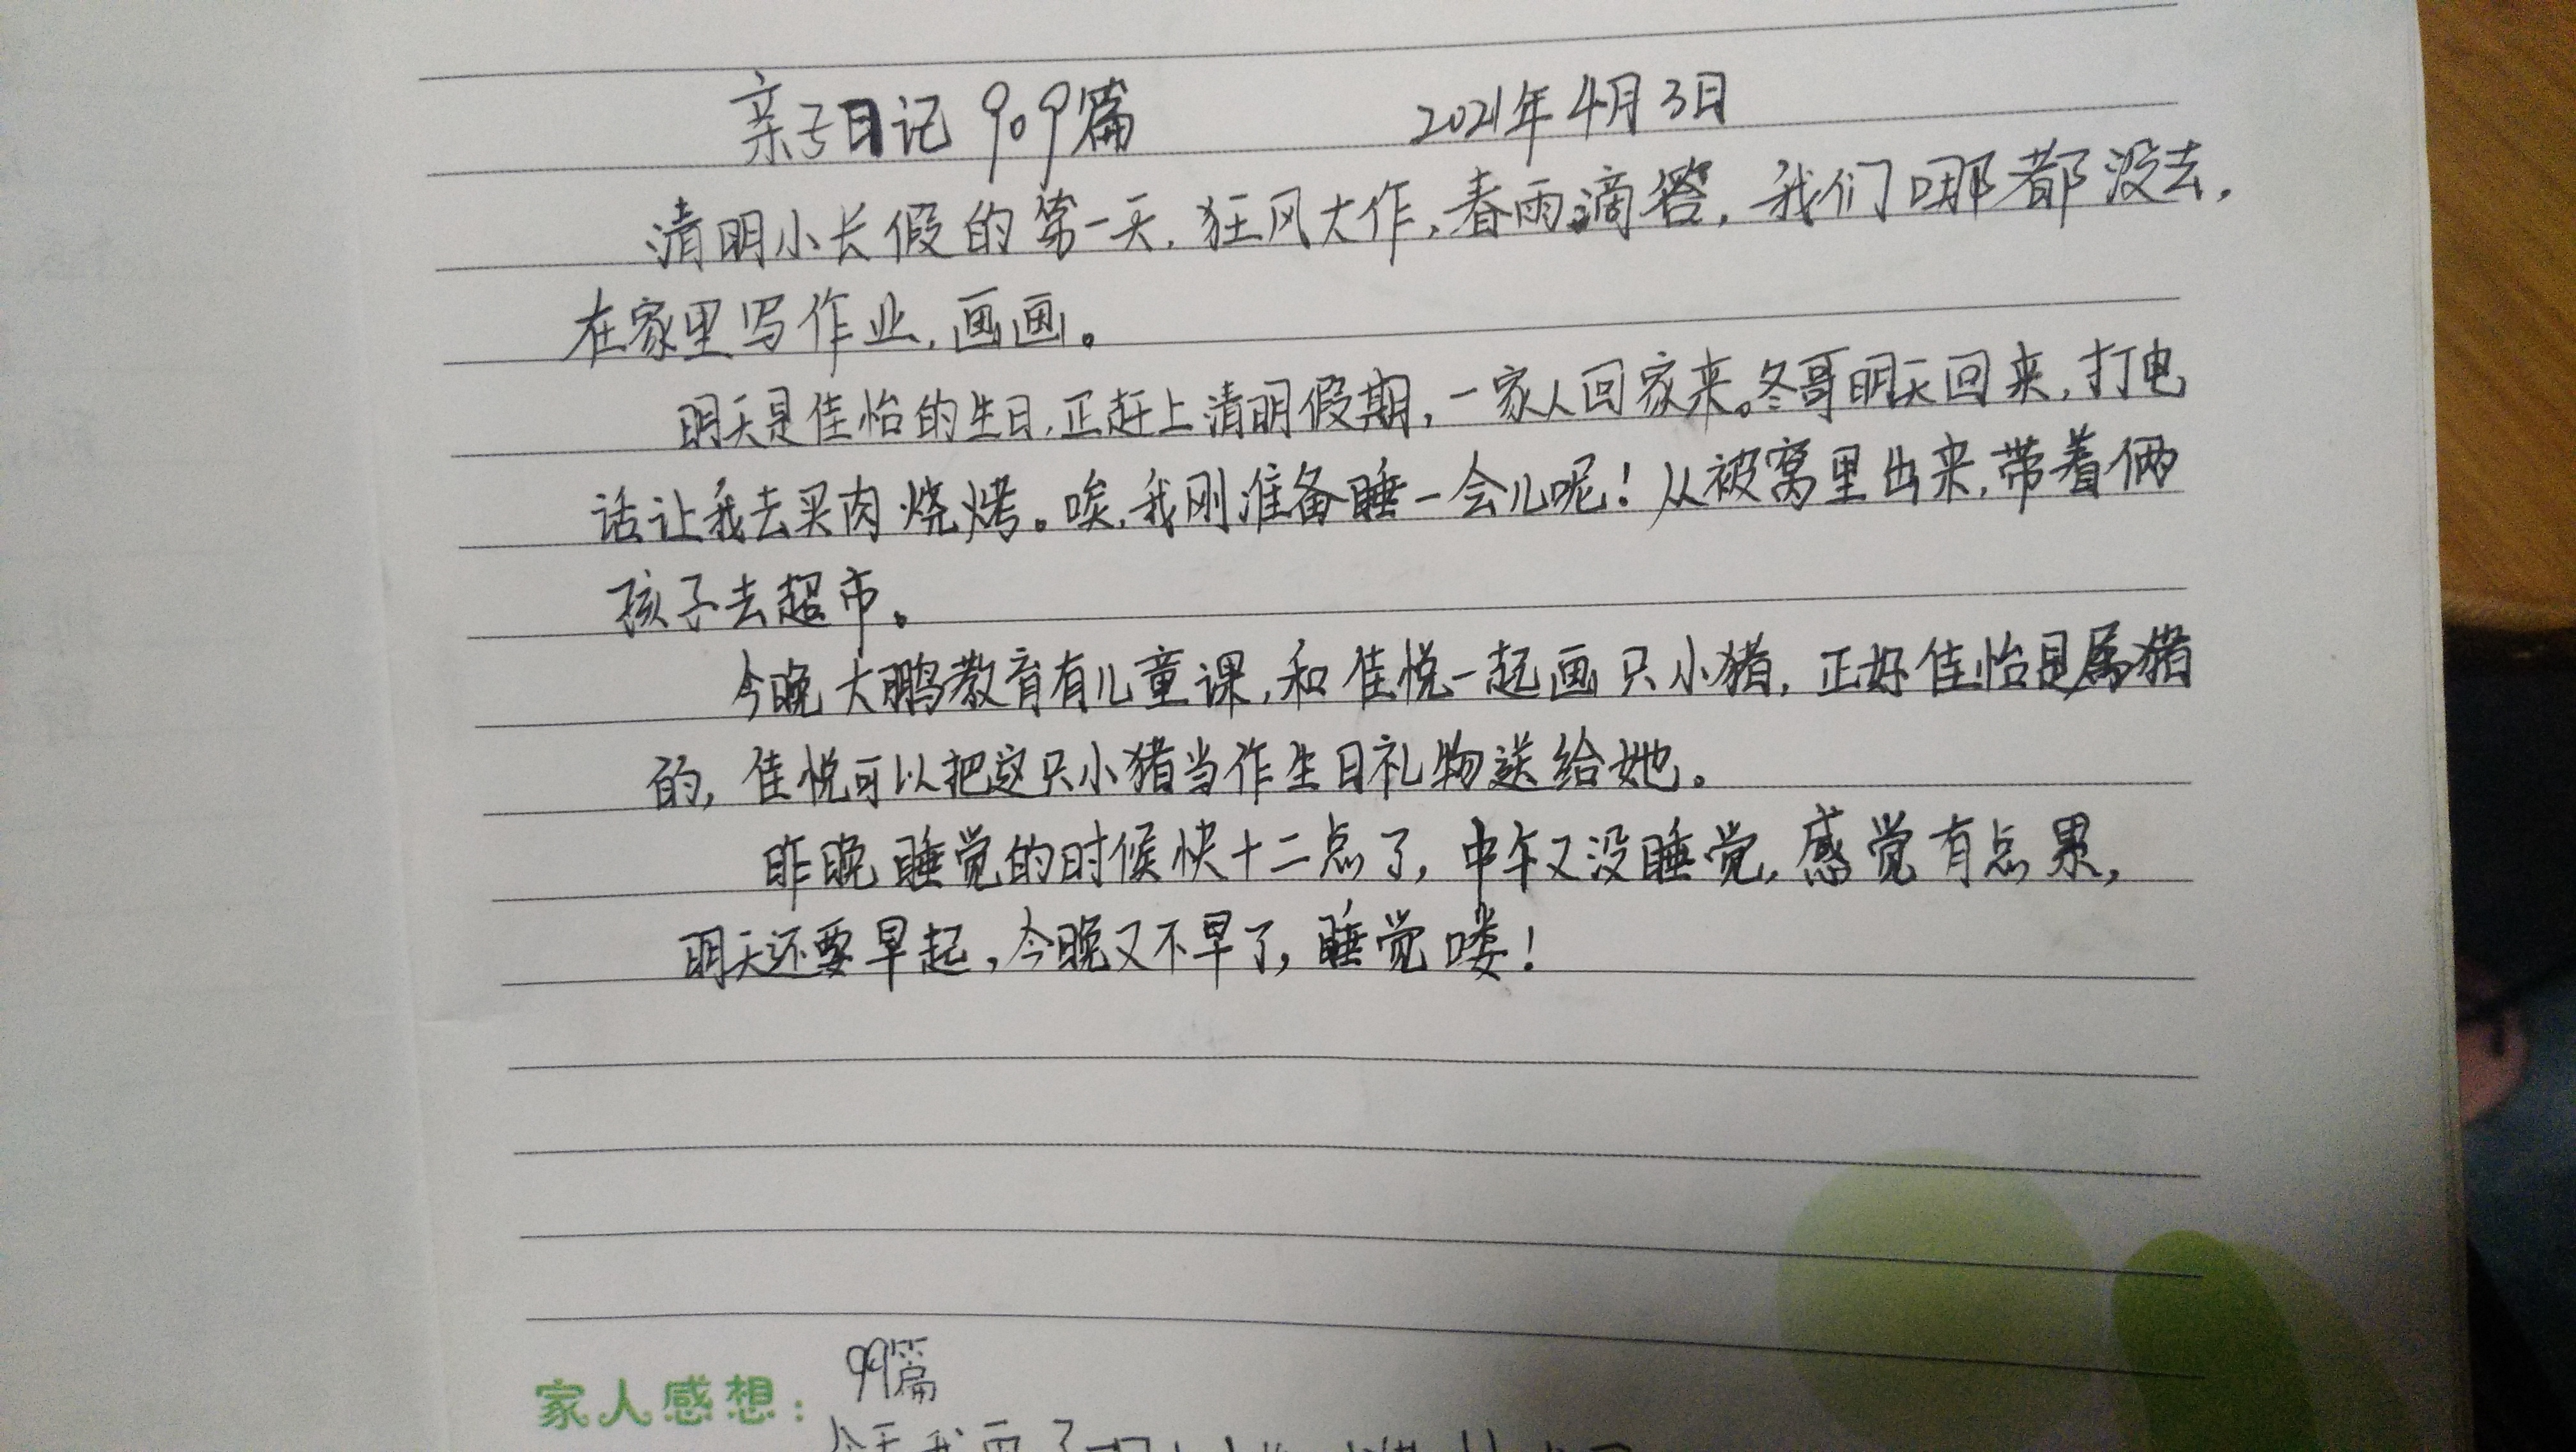 亲子日记 909篇 2021年4月3日
清明小长假的第一天,狂风大作,春雨滴答,我们哪都没去,
在家里写作业,画画。
明天是佳怡的生日,正赶上清明假期,一家人回家来。冬哥明天回来,打电
话让我去买肉烧烤。唉,我刚准备睡一会儿呢!从被窝里出来,带着俩
孩子去超市。
今晚大鹏教育有儿童课,和佳悦一起画只小猪,正好佳怡是属猪
的,佳悦可以把这只小猪当作生日礼物送给她。
昨晚睡觉的时候快十二点了,中午又没睡觉,感觉有点累,
明天还要早起,今晚又不早了,睡觉喽!
99篇
家人感想: